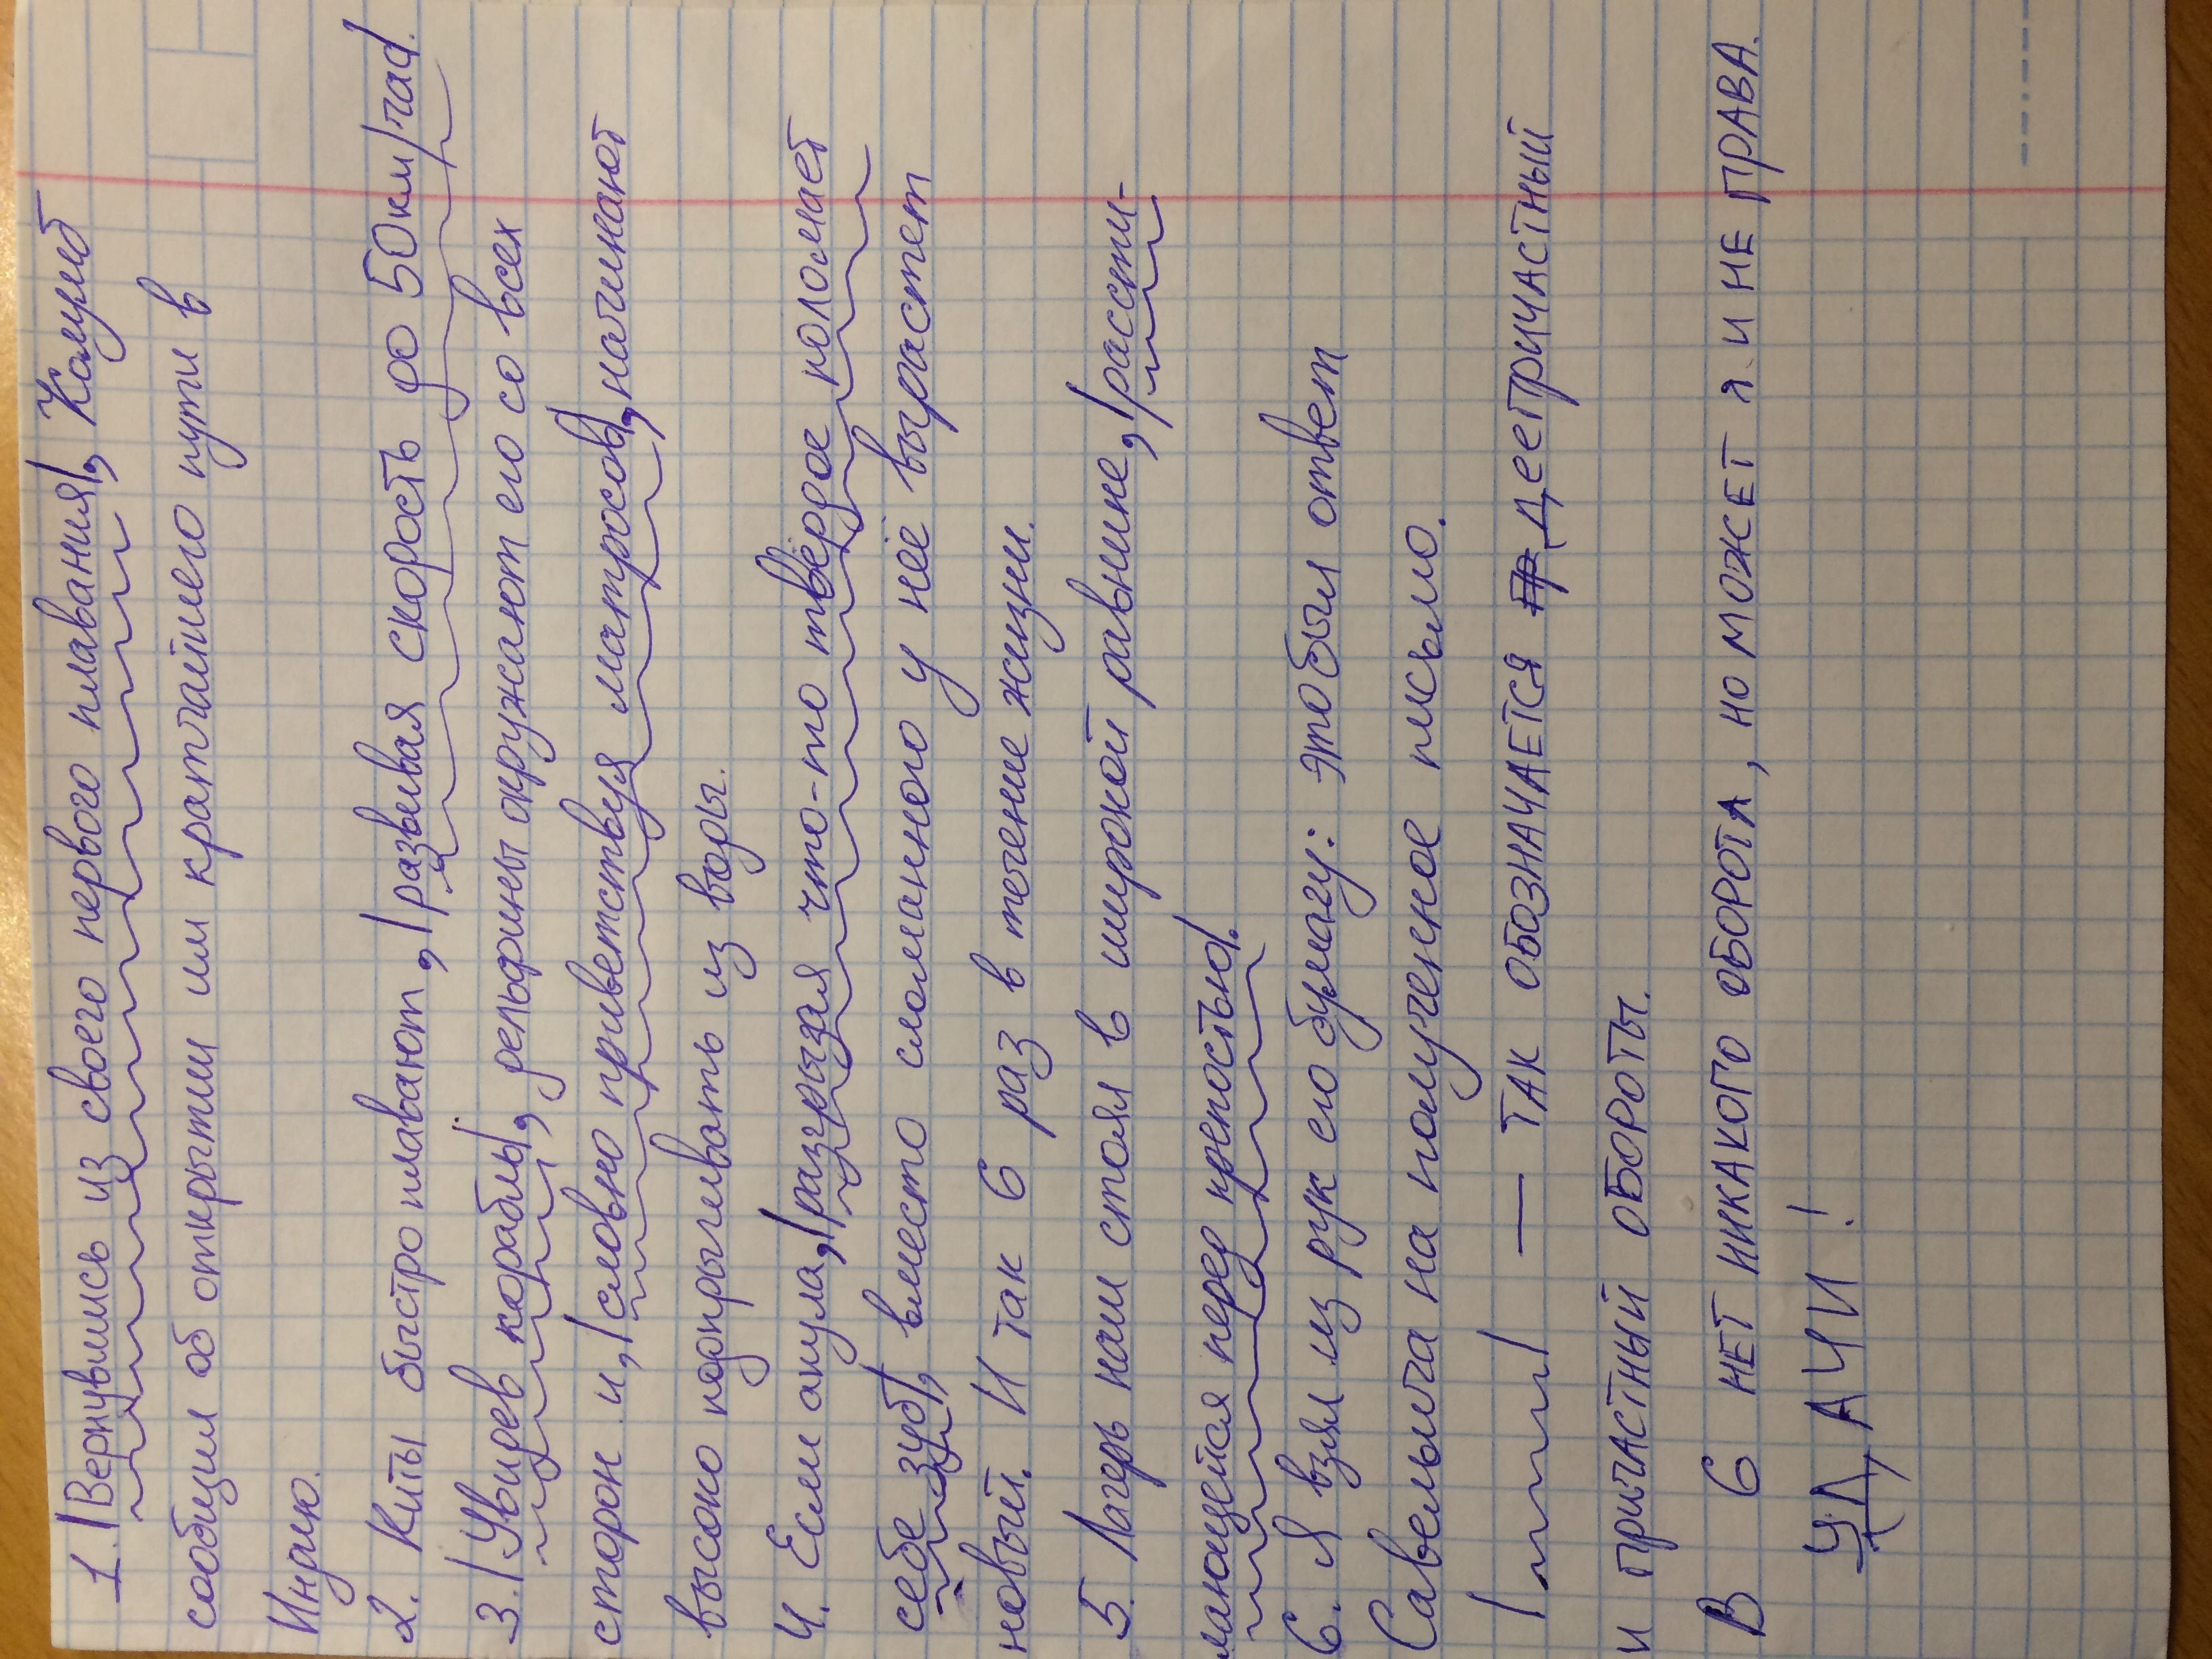 1. |Вернувшись из своего первого плавания|, Колумб
сообщил об открытии им кратчайшего пути в
Индию.
2. Киты быстро плавают, |развивая скорость до 50км/час|.
3. |Увидев корабль|, дельфины окружают его со всех
сторон и, |словно приветствуя матросов|, начинают
высоко подпрыгивать из воды.
4. Если акула, |разгрызая что-то твёрдое поломает
себе зуб|, вместо сломанного у неё вырастет
новый. И так 6 раз в течение жизни.
5. Лагерь наш стоял в широкой равнине, |рассти-
лающейся перед крепостью|.
6. Я взял из рук его бумагу: это был ответ
Савельича на полученное письмо.
| | — ТАК ОБОЗНАЧАЕТСЯ ДЕЕПРИЧАСТНЫЙ
И ПРИЧАСТНЫЙ ОБОРОТЫ.
В 6 НЕТ НИКАКОГО ОБОРОТА, НО МОЖЕТ Я И НЕ ПРАВА.
УДАЧИ!